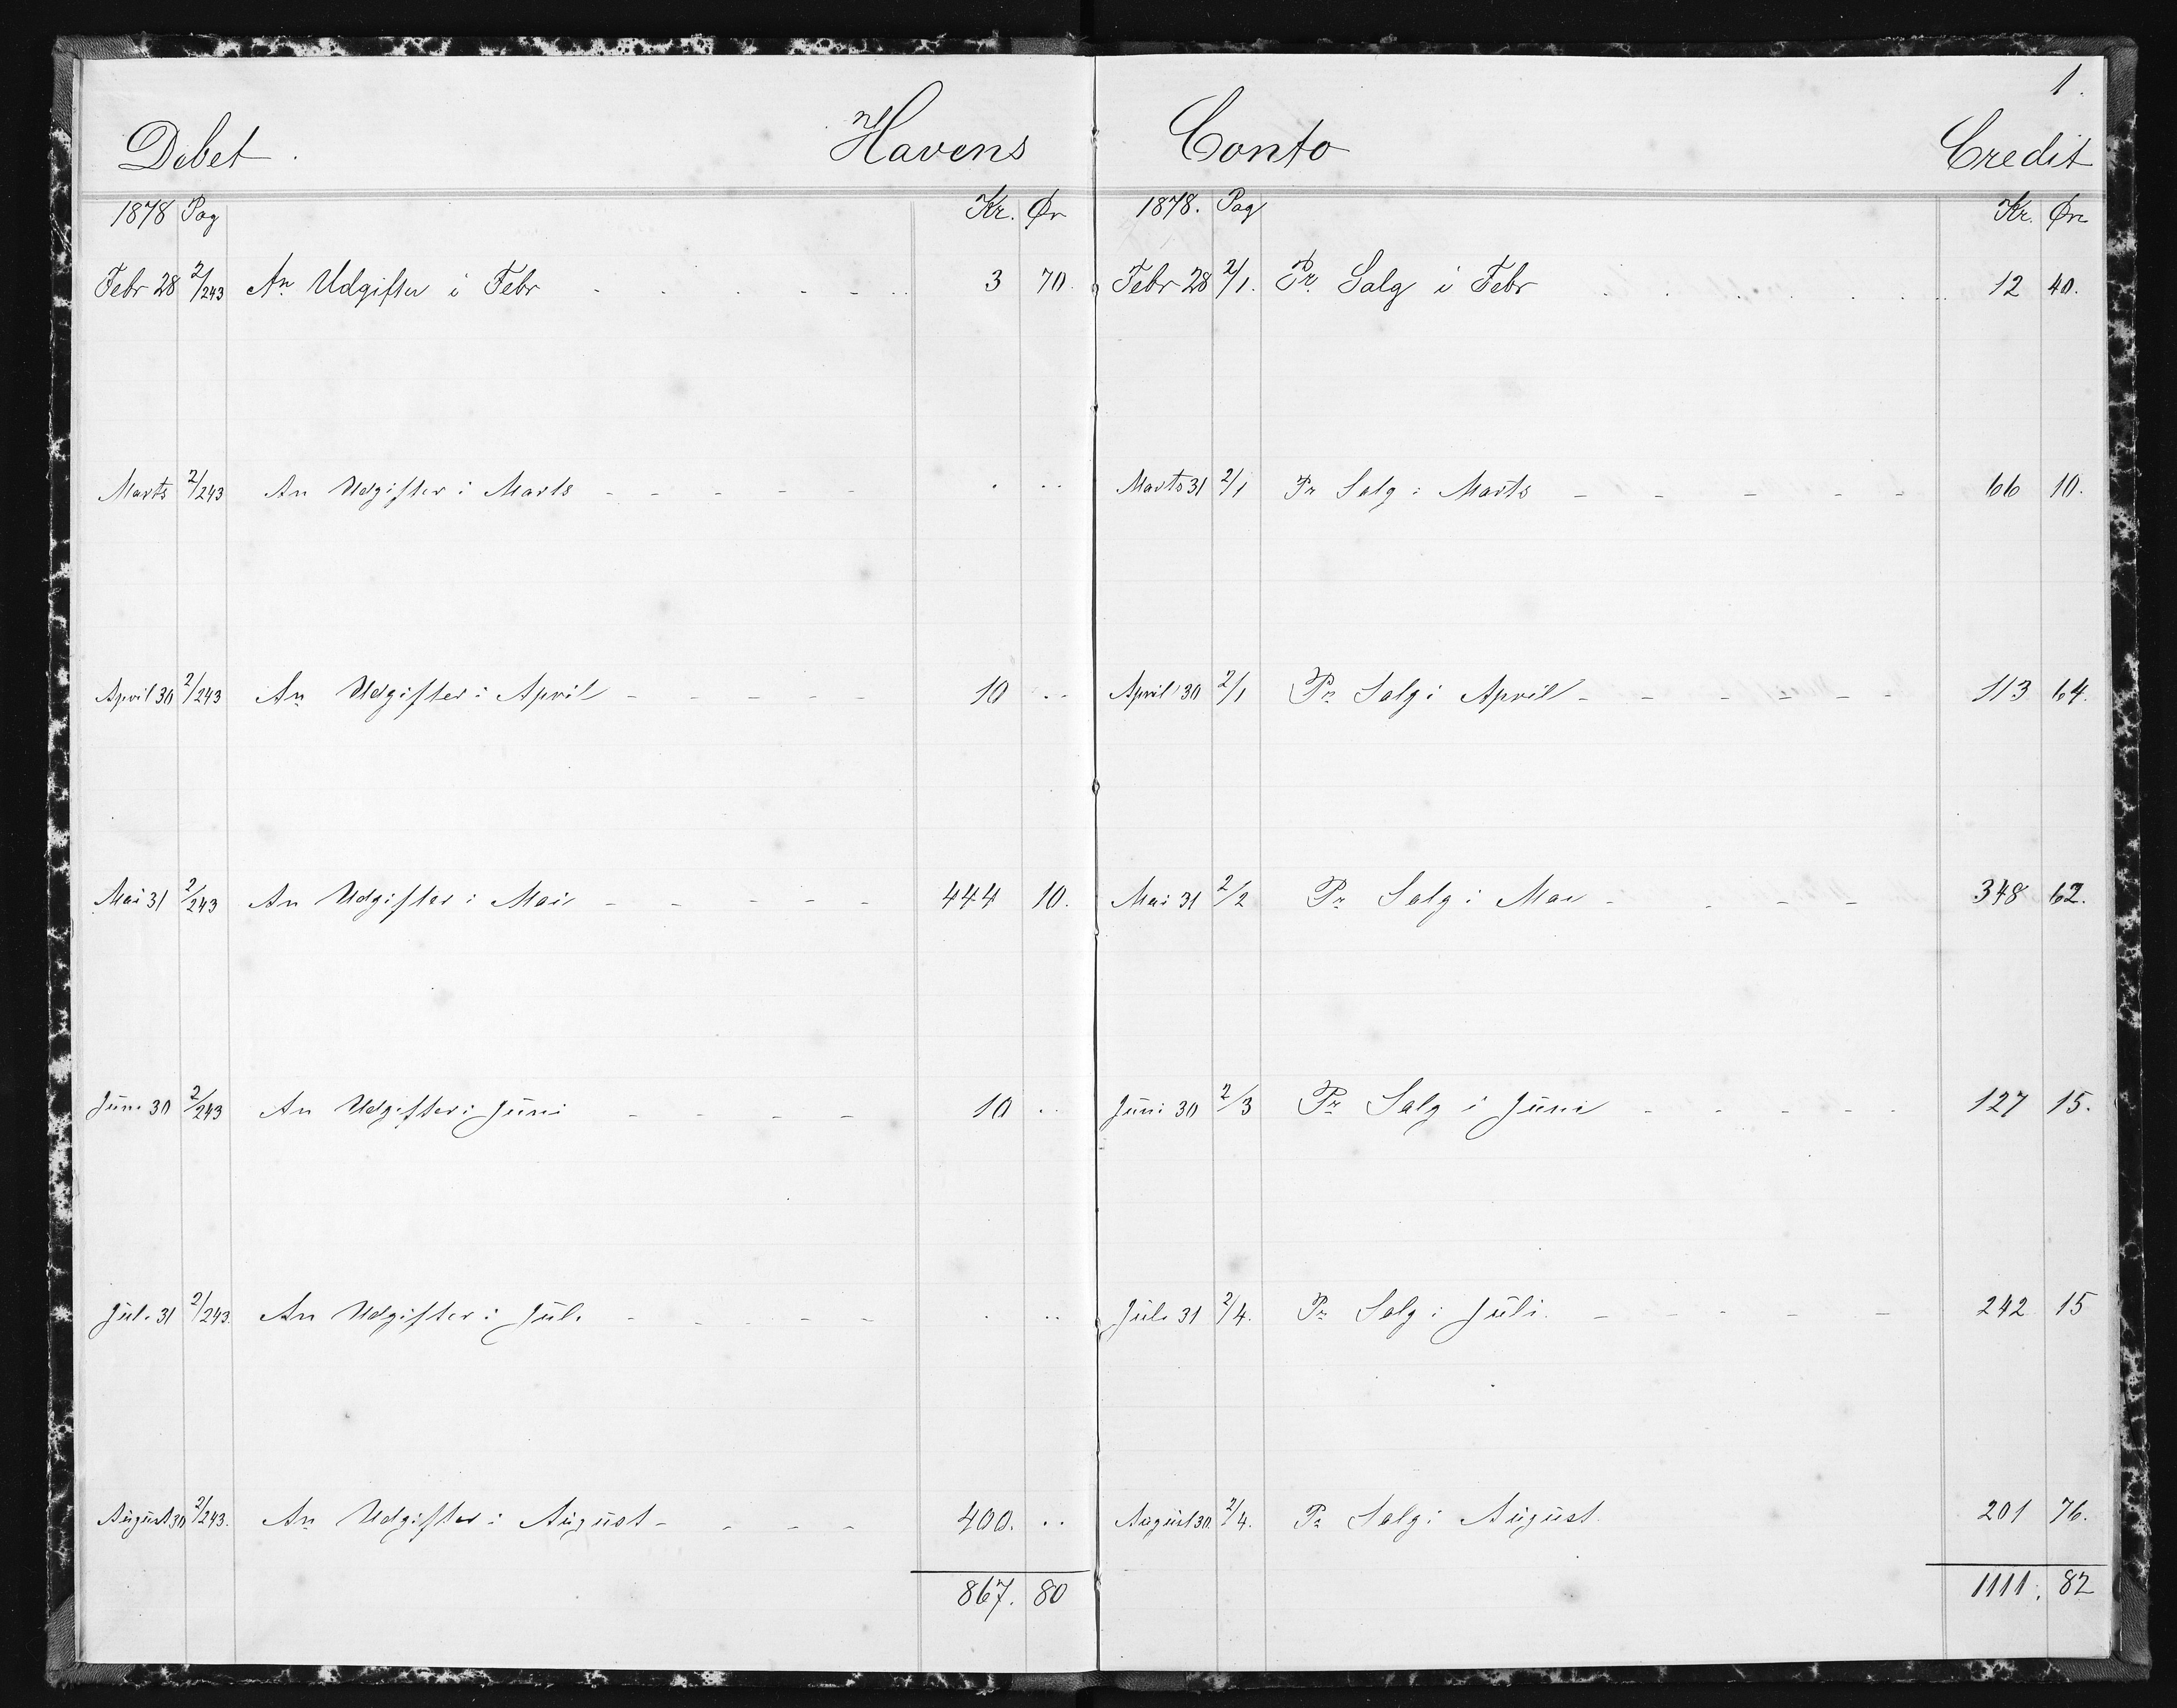 1.
Debet. Havens
1878 Pag Kr. Ør
Febr 28 2/243 An Udgifter i Febr 3 70.
Marts 2/243 An Udgifter i Marts . ..
April 30 2/243 An Udgifter i April 10 ..
Mai 31 2/243 An Udgifter i Mai 444 10.
Juni 30 2/243 An Udgifter i Juni 10 ..
Juli 31 2/243. An Udgifter i Juli . ..
August 30 2/243. An Udgifter i August 400. ..
867. 80
Conto Credit
1878. Pag Kr. Øre
Febr 28 2/1. Pr. Salg i Febr 12 40.
Marts 31 2/1 Pr Salg i Marts 66 10.
April 30 2/1 Pr Salg i April 113 64.
Mai 31 2/2 Pr Salg i Mai 348 62.
Juni 30 2/3 Pr Salg i Juni 127 15.
Juli 31 2/4. Pr Salg i Juli. 242 15
August 30 2/4. Pr Salg i August. 201 76.
1111. 82